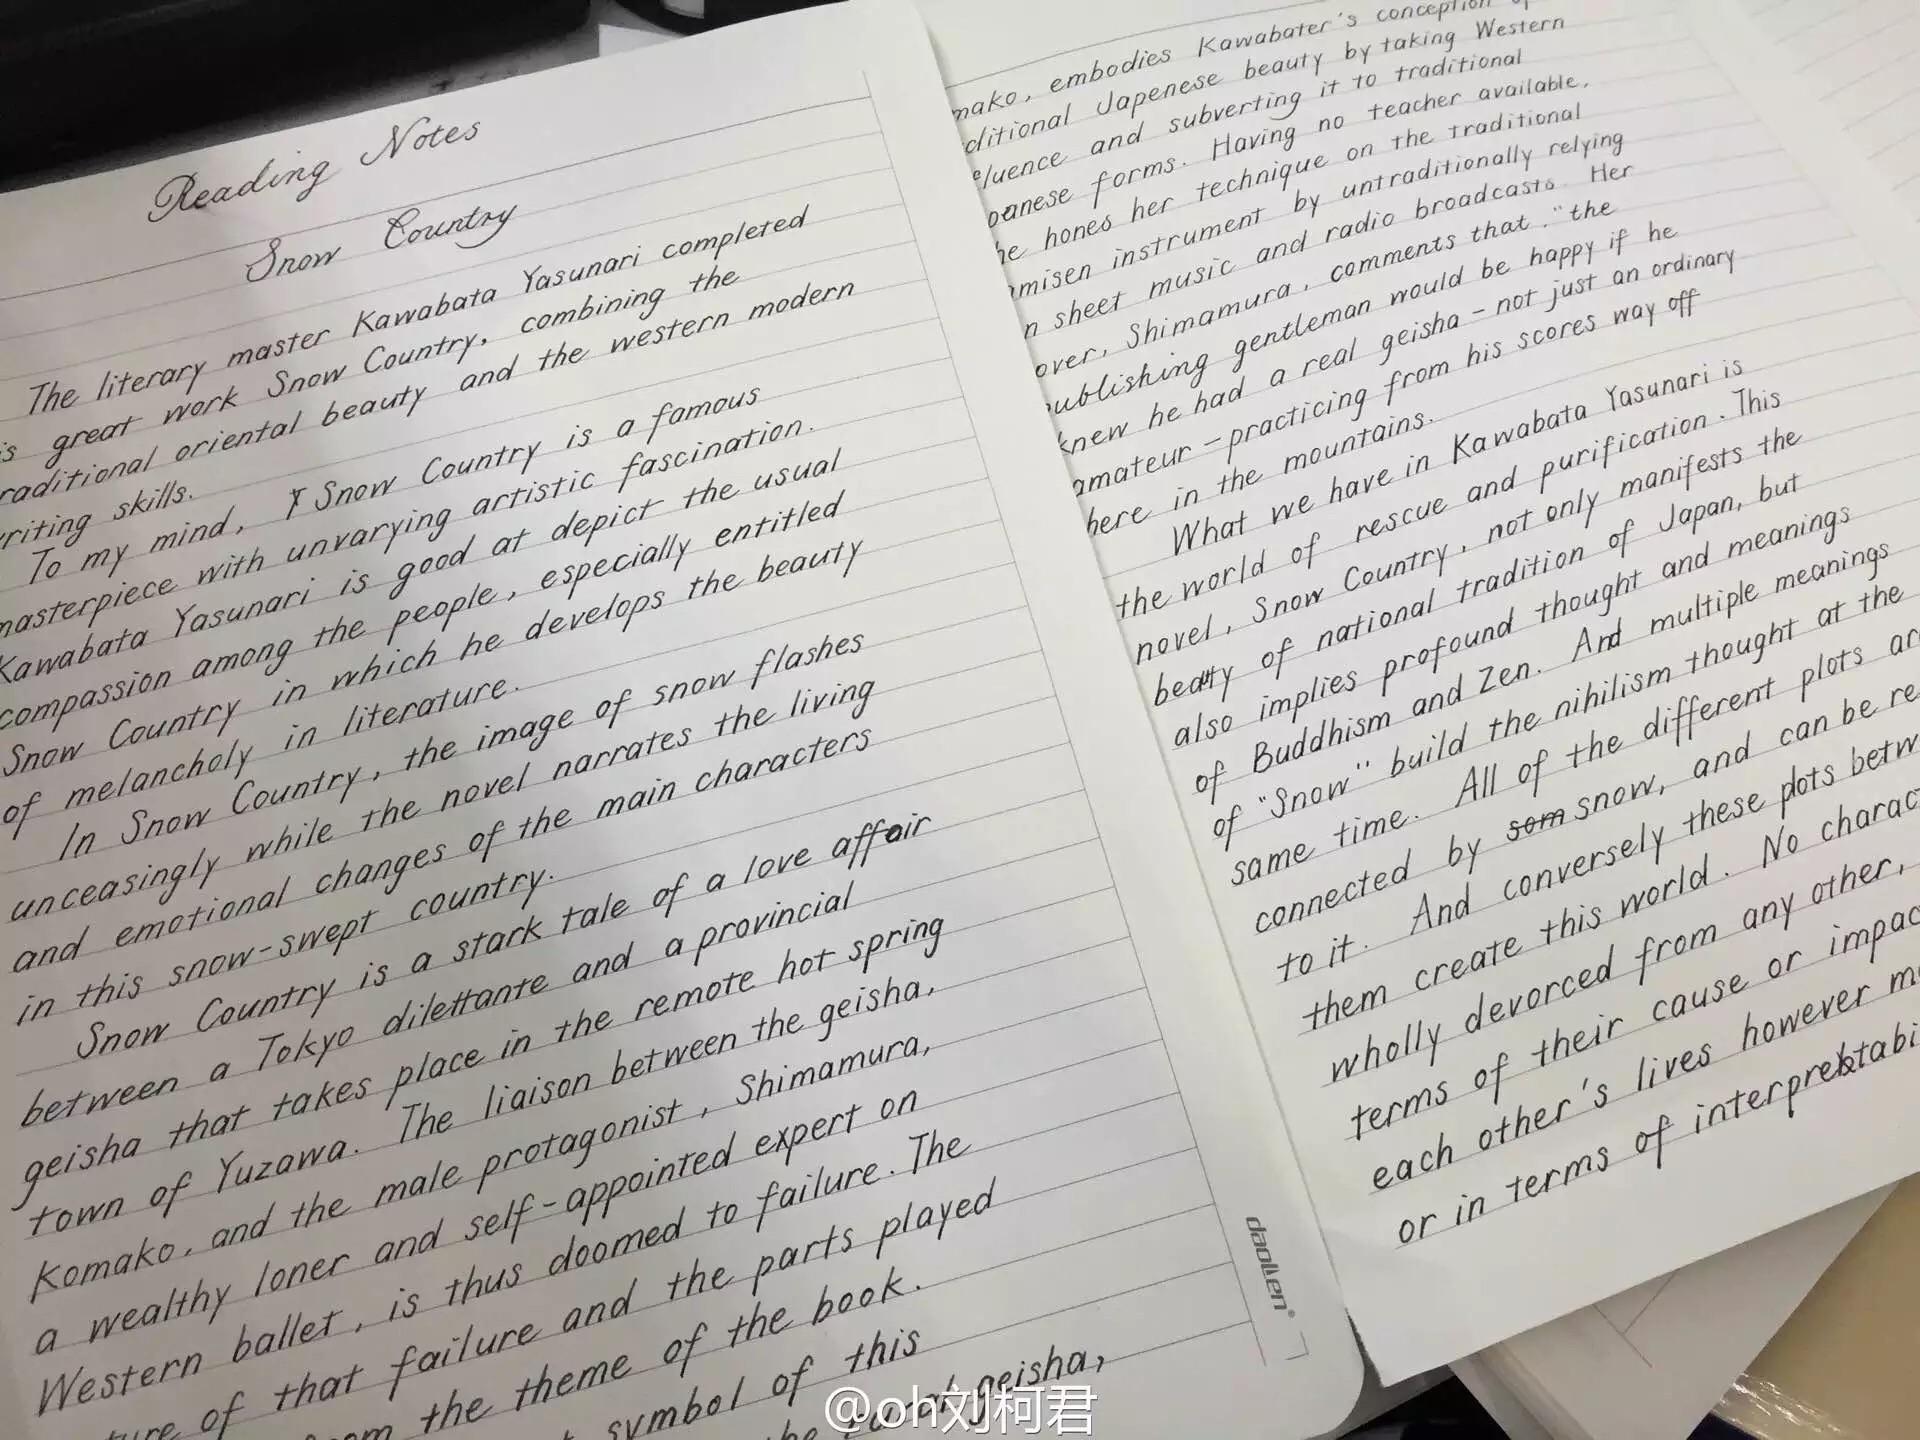 Reading Notes
Snow Country
The literary master Kawabata Yasunari completed
great work Snow Country, combining the
raditional oriental beauty and the western modern
riting skills.
To my mind, Snow Country is a famous
masterpiece with unvarying artistic fascination.
Kawabata Yasunari is good at depict the usual
compassion among the people, especially entitled
Snow Country in which he develops the beauty
of melancholy in literature.
In Snow Country, the image of snow flashes
unceasingly while the novel narrates the living
and emotional changes of the main characters
in this snow-swept country.
Snow Country is a stark tale of a love affair
between a Tokyo dilettante and a provincial
geisha that takes place in the remote hot spring
town of Yuzawa. The liaison between the geisha,
Komako, and the male protagonist, Shimamura,
a wealthy loner and self-appointed expert on
Western ballet, is thus doomed to failure. The
ture of that failure and the parts played
om the theme of the book.
symbol of this
geisha,
mako, embodies Kawabater's conception
ditional Japenese beauty by taking Western
luence and subverting it to traditional
panese forms. Having no teacher available,
he hones her technique on the traditional
amisen instrument by untraditionally relying
n sheet music and radio broadcasts. Her
over, Shimamura, comments that "the
ublishing gentleman would be happy if he
knew he had a real geisha - not just an ordinary
amateur - practicing from his scores way off
here in the mountains.
What we have in Kawabata Yasunari is
the world of rescue and purification. This
novel, Snow Country, not only manifests the
beauty of national tradition of Japan, but
also implies profound thought and meanings
of Buddhism and Zen. And multiple meanings
of "Snow" build the nihilism thought at the
same time. All of the different plots are
connected by som snow, and can be re
to it. And conversely these plots betw
them create this world. No charac
wholly devorced from any other,
terms of their cause or impac
each other's lives however m
or in terms of
daollen®
@oh刘柯君